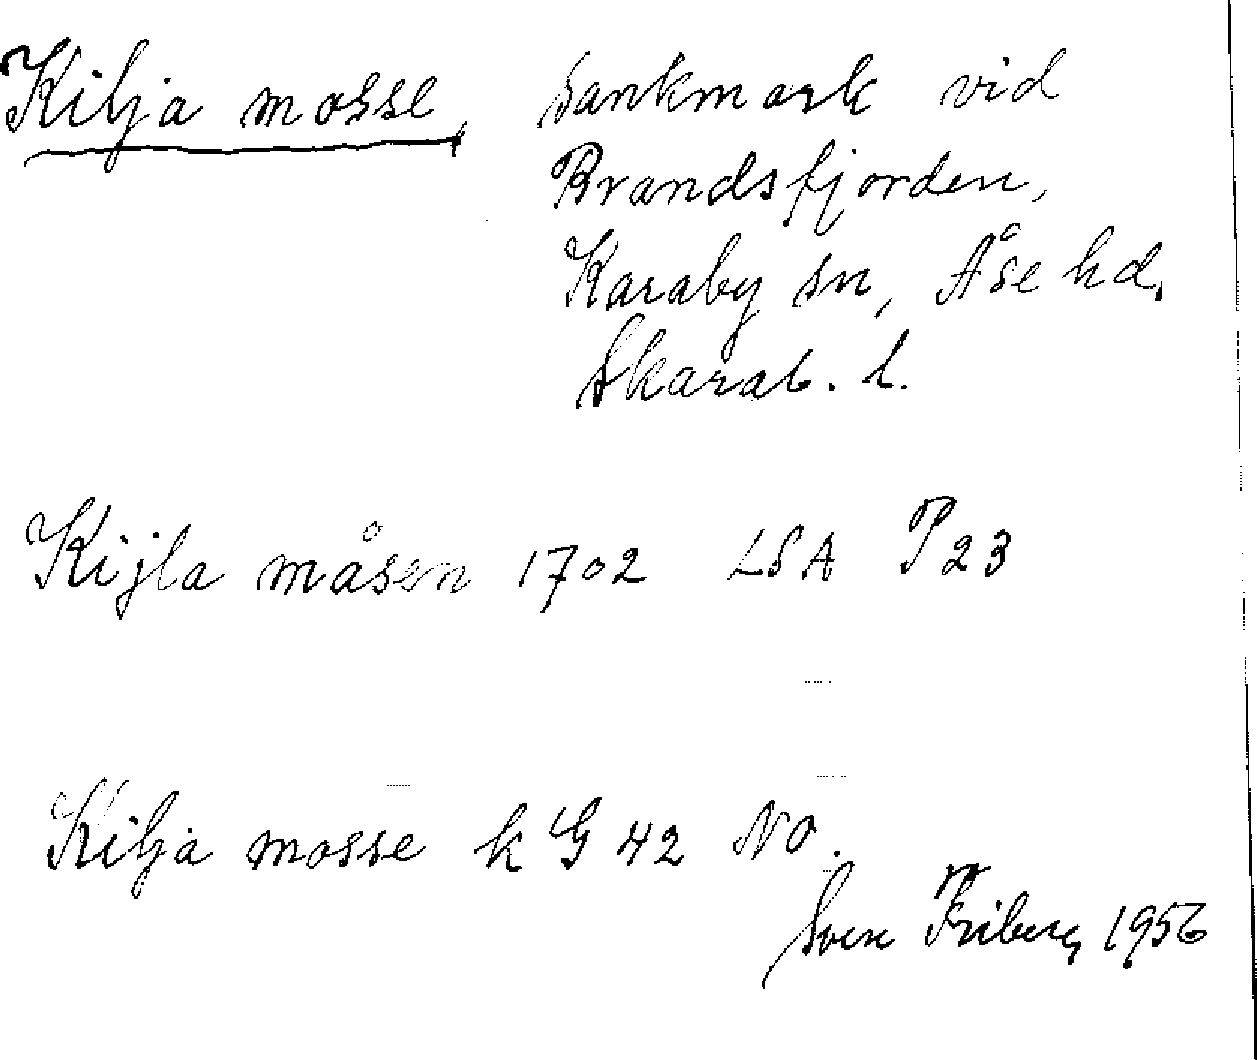 Kilja mosse, Sankmark vid
Brandsfjorden,
Karaby sn, Åse hd,
Skarab. l.
Kijla måsen 1702 LSA P23
Kilja mosse k G 42 NO.
Sven Friberg 1956